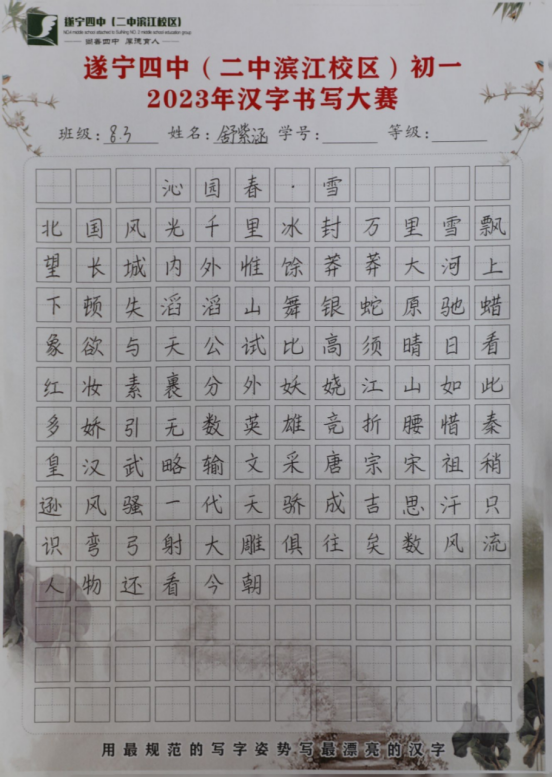 遂宁四中(二中滨江校区)
崇善四中 厚德育人
遂宁四中(二中滨江校区)初一
2023年汉字书写大赛
班级:8.3 姓名:舒紫涵 学号: 等级:
沁园春·雪
北国风光千里冰封万里雪飘
望长城内外惟馀莽莽大河上
下顿失滔滔山舞银蛇原驰蜡
象欲与天公试比高须晴日看
红妆素裹分外妖娆江山如此
多娇引无数英雄竞折腰惜秦
皇汉武略输文采唐宗宋祖稍
逊风骚一代天骄成吉思汗只
识弯弓射大雕俱往矣数风流
人物还看今朝
用最规范的写字姿势写最漂亮的汉字